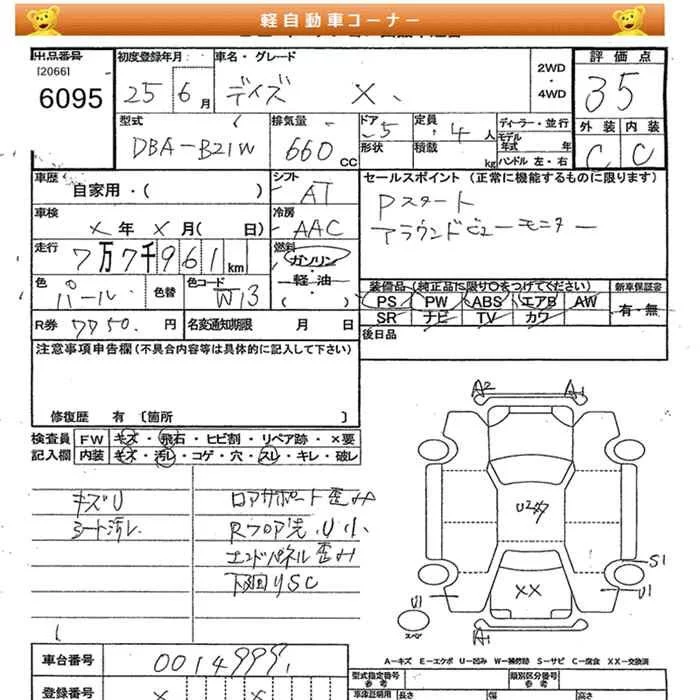 軽自動車コーナー
出品番号
[2066]
6095
初度登録年月
25 6月
車名・グレード
デイズ X
2WD
・
4WD
評価点
35
外装 内装
C C
型式
DBA-B21W
排気量
660 CC
ドア
5
形状
定員
4人
積載
kg
ディーラー・並行
モデル
年式 年
ハンドル 左・右
車歴
自家用・( )
シフト
AT
セールスポイント (正常に機能するものに限ります)
Pスタート
アラウンドビューモニター
車検
X年 X月( 日)
冷房
AAC
走行
7万7千961km
燃料
ガソリン
・
軽油
・
( )
色
パール
色替
色コード
W13
装備品 (純正品に限り○をつけてください)
PS PW ABS エアB AW
SR ナビ TV カワ
新車保証書
有・無
R券 7750. 円
名変通知期限 月 日
後日品
注意事項申告欄(不具合内容等は具体的に記入して下さい)
修復歴 有 〔箇所 〕
検査員
記入欄
FW キズ・飛石・ヒビ割・リペア跡・×要
内装 キズ・汚レ・コゲ・穴・スレ・キレ・破レ
キズU
シート汚レ
コアサポート歪み
Rフロア先 U小
エンドパネル歪み
下廻りSC
A2 A1
XX
S1
U1 U1
スペア
A1
A-キズ E-エクボ U-凹み W-補修跡 S-サビ C-腐食 XX-交換済
車台番号
0014999
登録番号
型式指定番号
参考
類別区分番号
参考
長さ
幅
高さ